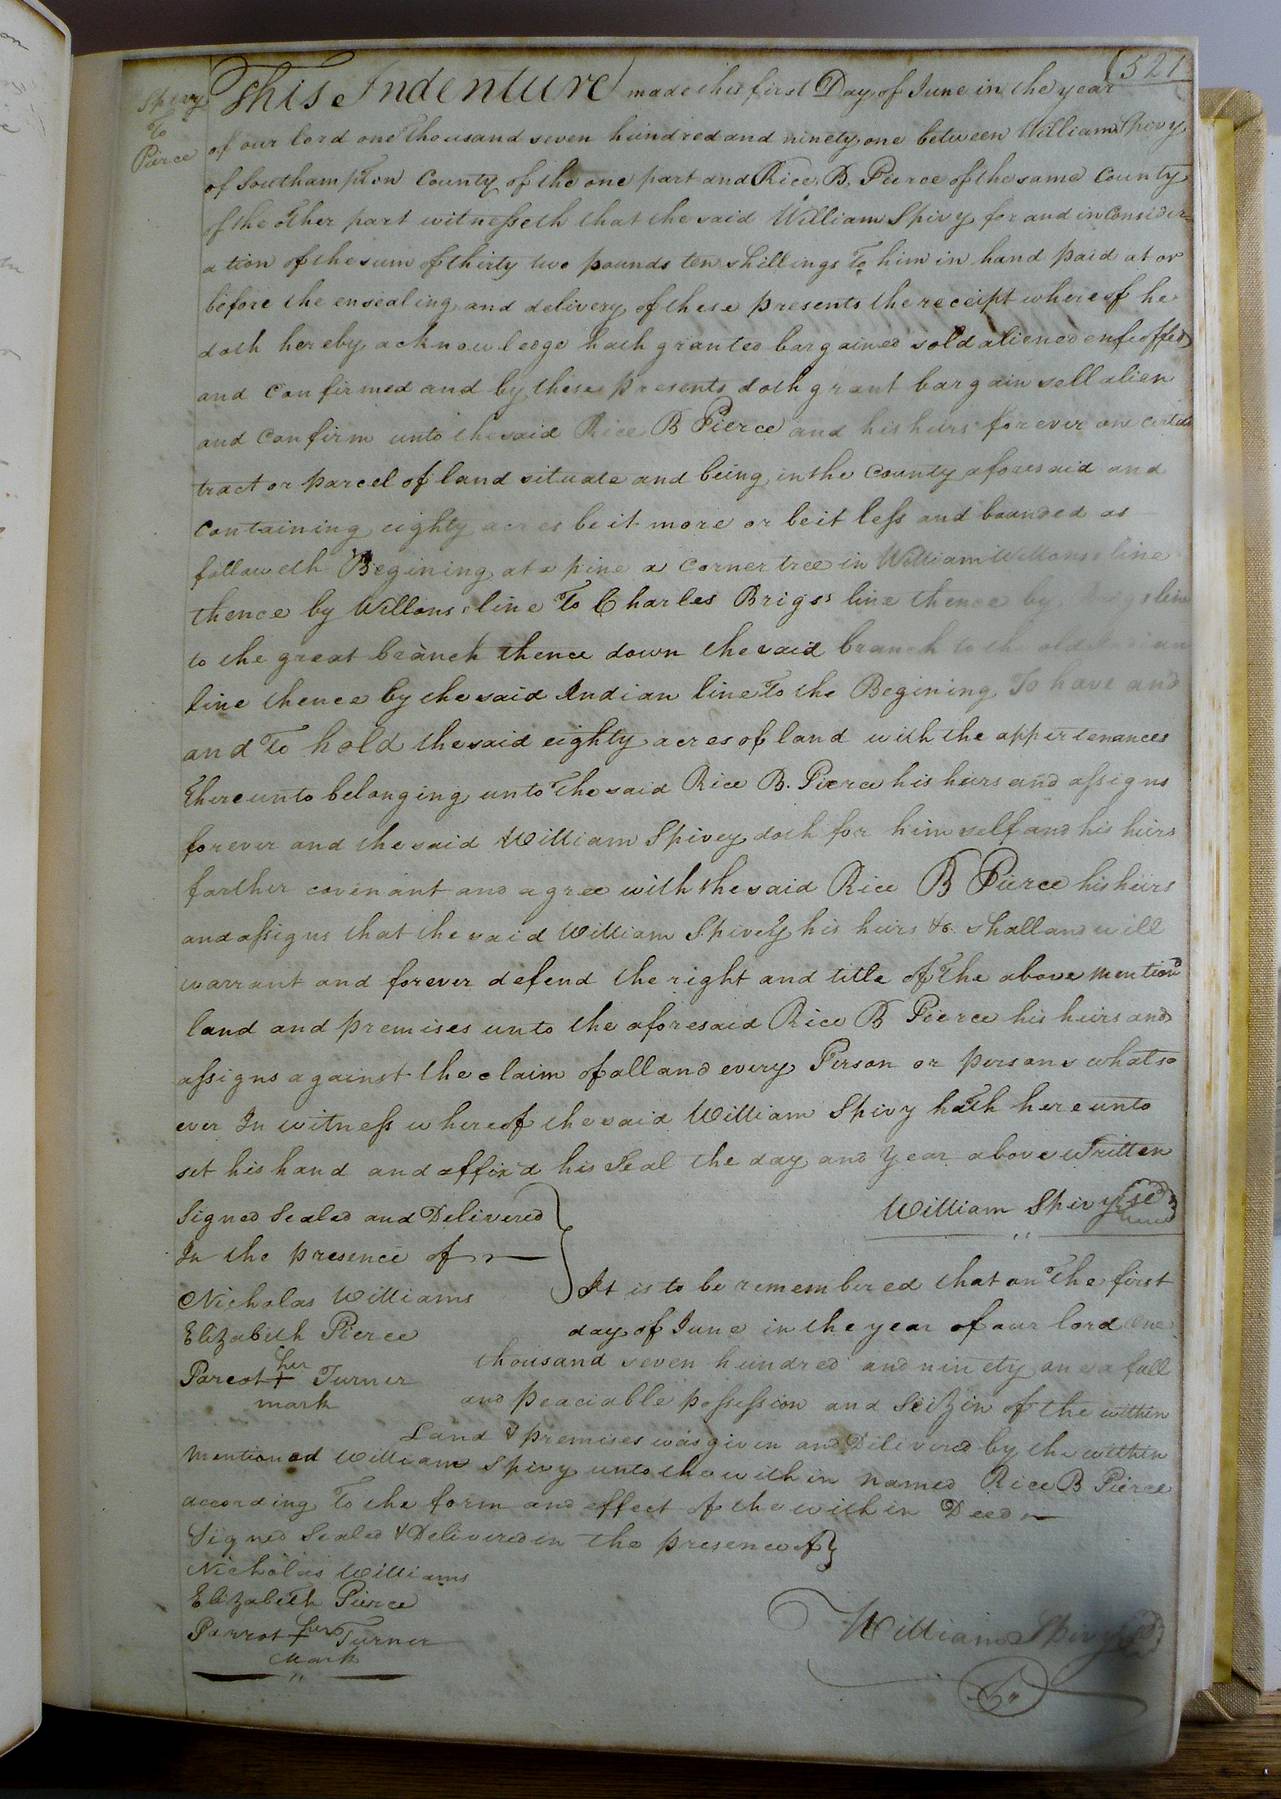 (521
Spivy
To
Pierce
This Indenture made this first Day of June in the year
of our lord one Thousand seven hundred and ninety one between William Spivy
of Southampton County of the one part and Rice. B. Pierce of the same County
of the other part witnesseth that the said William Spivy for and in Consider-
ation of the sum of thirty two pounds ten shillings To him in hand paid at or
before the ensealing and delivery of these presents the receipt whereof he
doth hereby acknowledge hath granted bargained sold aliened enfeoffed
and Confirmed and by these presents doth grant bargain sell alien
and Confirm unto the said Rice B Pierce and his heirs forever one certain
tract or parcel of land situate and being in the County aforesaid and
Containing eighty acres be it more or be it less and bounded as
followeth Begining at a pine a Corner tree in William Willons line
thence by Willons line To Charles Brigs's line thence by line
to the great branch thence down the said branch to the old Indian
line thence by the said Indian line To the Begining To have and
and To hold the said eighty acres of land with the appertenances
Thereunto belonging unto The said Rice B. Pierce his heirs and assigns
forever and the said William Spivey doth for him self and his heirs
farther covenant and agree with the said Rice B Pierce his heirs
and assigns that the said William Spivey his heirs &c. shall and will
warrant and forever defend the right and title of The above mention'd
land and premises unto the aforesaid Rice B Pierce his heirs and
assigns against the claim of all and every Person or persons whatso
ever In witness whereof the said William Spivy hath hereunto
set his hand and affix'd his Seal the day and year above written
William Spivy
Signed Sealed and Delivered
In the presence of
Nicholas Williams
Elizabeth Pierce
her
Parrot + Turner
mark
It is to be remembered that on The first
day of June in the year of our lord One
thousand seven hundred and ninety one a full
and peaciable possession and Seitzin of the within
Land & premises was given and Delivered by the within
mentioned William Spivy unto the within named Rice B Pierce
according To the form and effect of the within Deed
Signed Sealed & Delivered in the presence of
Nicholas Williams
Elizabeth Pierce
Parrot + her Turner
Mark
William Spivy